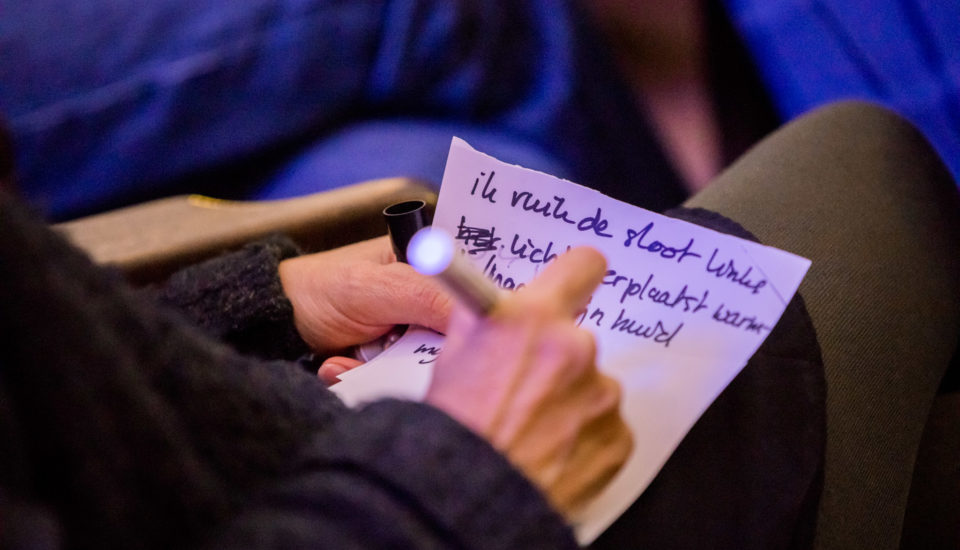 ik ruik de sloot links
licht erplaatst warm-
jn huid
my